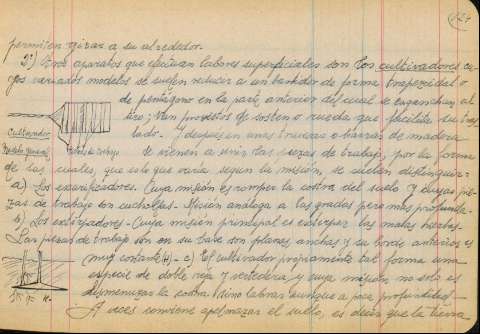 124
permiten girar a su alrededor.
2º) Otros aparatos que efectúan labores superficiales son los cultivadores cu-
yos variados modelos se suelen reducir a un bastidor de forma trapezoidal o
de pentágono en la parte anterior del cual se enganchan al
tiro; van provistos de sosten o rueda que facilita su tras
lado. Y después en unas traviesas o barras de madera
Cultivador
Modelo general
se vienen a unir las piezas de trabajo, por la forma
de las cuales, que es lo que varía según la misión, se suelen distinguir:
a) Los escarificadores. Cuya misión es romper la costra del suelo y cuyas pie-
zas de trabajo son cuchollas. Misión análoga a las gradas pero más profunda.
b) Los extirpadores. Cuya misión principal es extirpar las malas hierbas.
Las piezas de trabajo son en su base son planas, anchas y su borde anterior es
muy cortante (H). - c) El cultivador propiamente tal forma una
especie de doble reja y vertedera, y cuya misión no solo es
desmenuzar la costra sino labrar aunque a poca profundidad.
A veces conviene apelmazar el suelo, es decir que la tierra